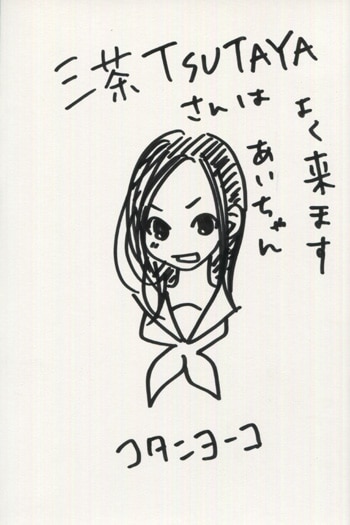 三茶TSUTAYA
さんは
よく来ます
あいちゃん
コタニヨーコ